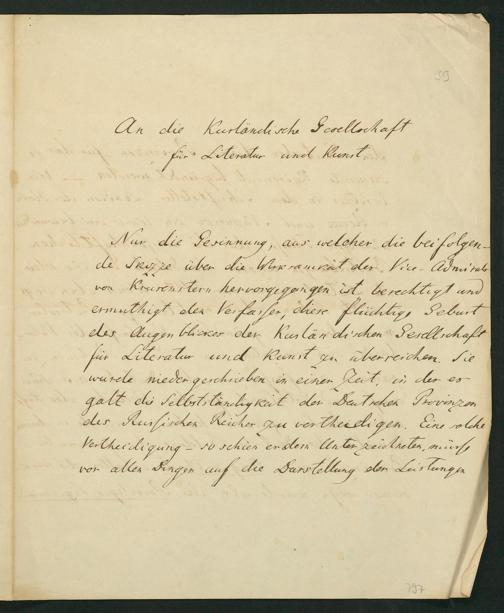 39
An die Kurländische Gesellschaft
für Literatur und Kunst
Nur die Gesinnung, aus welcher die beifolgen-
de Skizze über die Wirksamkeit des Vice-Admirals
von Krusenstern hervorgegangen ist, berechtigt und
ermuthigt den Verfasser, diese flüchtige Geburt
des Augenblickes der Kurländischen Gesellschaft
für Literatur und Kunst zu überreichen. Sie
wurde niedergeschrieben in einer Zeit, in der es
galt die Selbstständigkeit der Deutschen Provinzen
des Russischen Reiches zu vertheidigen. Eine solche
Vertheidigung – so schien es dem Unterzeichneten, müsse
vor allen Dingen auf die Darstellung der Leistungen
797